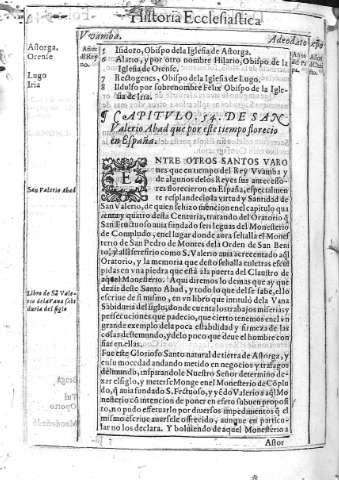 Historia Ecclesiastica
Vvamba.
Adeodato
Astorga.
Orense
Lugo
Iria
5 Isidoro, Obispo de la Iglesia de Astorga.
6 Alario, y por otro nombre Hilario, Obispo de la
Iglesia de Orense.
7 Rectogenes, Obispo de la Iglesia de Lugo.
8 Ildulfo por sobrenombre Felix Obispo de la Igle-
sia de Iria.
¶ CAPITVLO. 54. DE SAN
Valerio Abad que por este tiempo florecio
en España.
San Valerio Abad
ENTRE OTROS SANTOS VARO
nes que en tiempo del Rey Vvamba y
de algunos de los Reyes sus antecesso-
res florecieron en España, especialmen
te resplandesce la virtud y Santidad de
San Valerio, de quien se hizo mencion en el capitulo qua
renta y quatro desta Centuria, tratando del Oratorio q̃
San Fructuoso auia fundado fera leguas del Monesterio
de Compludo, en el lugar donde aora se halla el Mones
terio de San Pedro de Montes de la Orden de San Beni
to, y alli se refirio como S. Valerio auia acrecentado aql̃
Oratorio, y la memoria que desto se halla en letras escul
pidas en vna piedra que està a la puerta del Claustro de
aquel Monesterio. Aqui diremos lo demas que ay que
dezir deste Santo Abad, y todo lo que del se sabe, ello
escriue de si mismo, en vn libro que intitulò de la Vana
Sabiduria del siglo, donde cuenta los trabajos miserias y
persecuciones que padecio, que cierto tenemos en el vn
grande exemplo de la poca estabilidad y firmeza de las
cosas deste mundo, y de lo poco que deue el hombre con
fiar en ellas.
Libro de Sã Vale-
rio de la Vana sabi
duria del siglo
Fue este Glorioso Santo natural de tierra de Astorga, y
en su mocedad andando metido en negocios y trafagos
del mundo, inspirandole Nuestro Señor determinò de-
xar el siglo, y meterse Monge en el Monesterio de Cõplu
do, q̃ auia fundado S. Frctuoso, y cõdo Valerio a aql̃ Mo
nesterio cõ intencion de poner en efeto su buen proposi
to, no pudo efetuarlo por diuersos impedimentos q̃ el
mismo escriue auersele ofrecido, aunque en particu-
lar no los declara. Y boluiendo de aquel Monesterio a
Astor